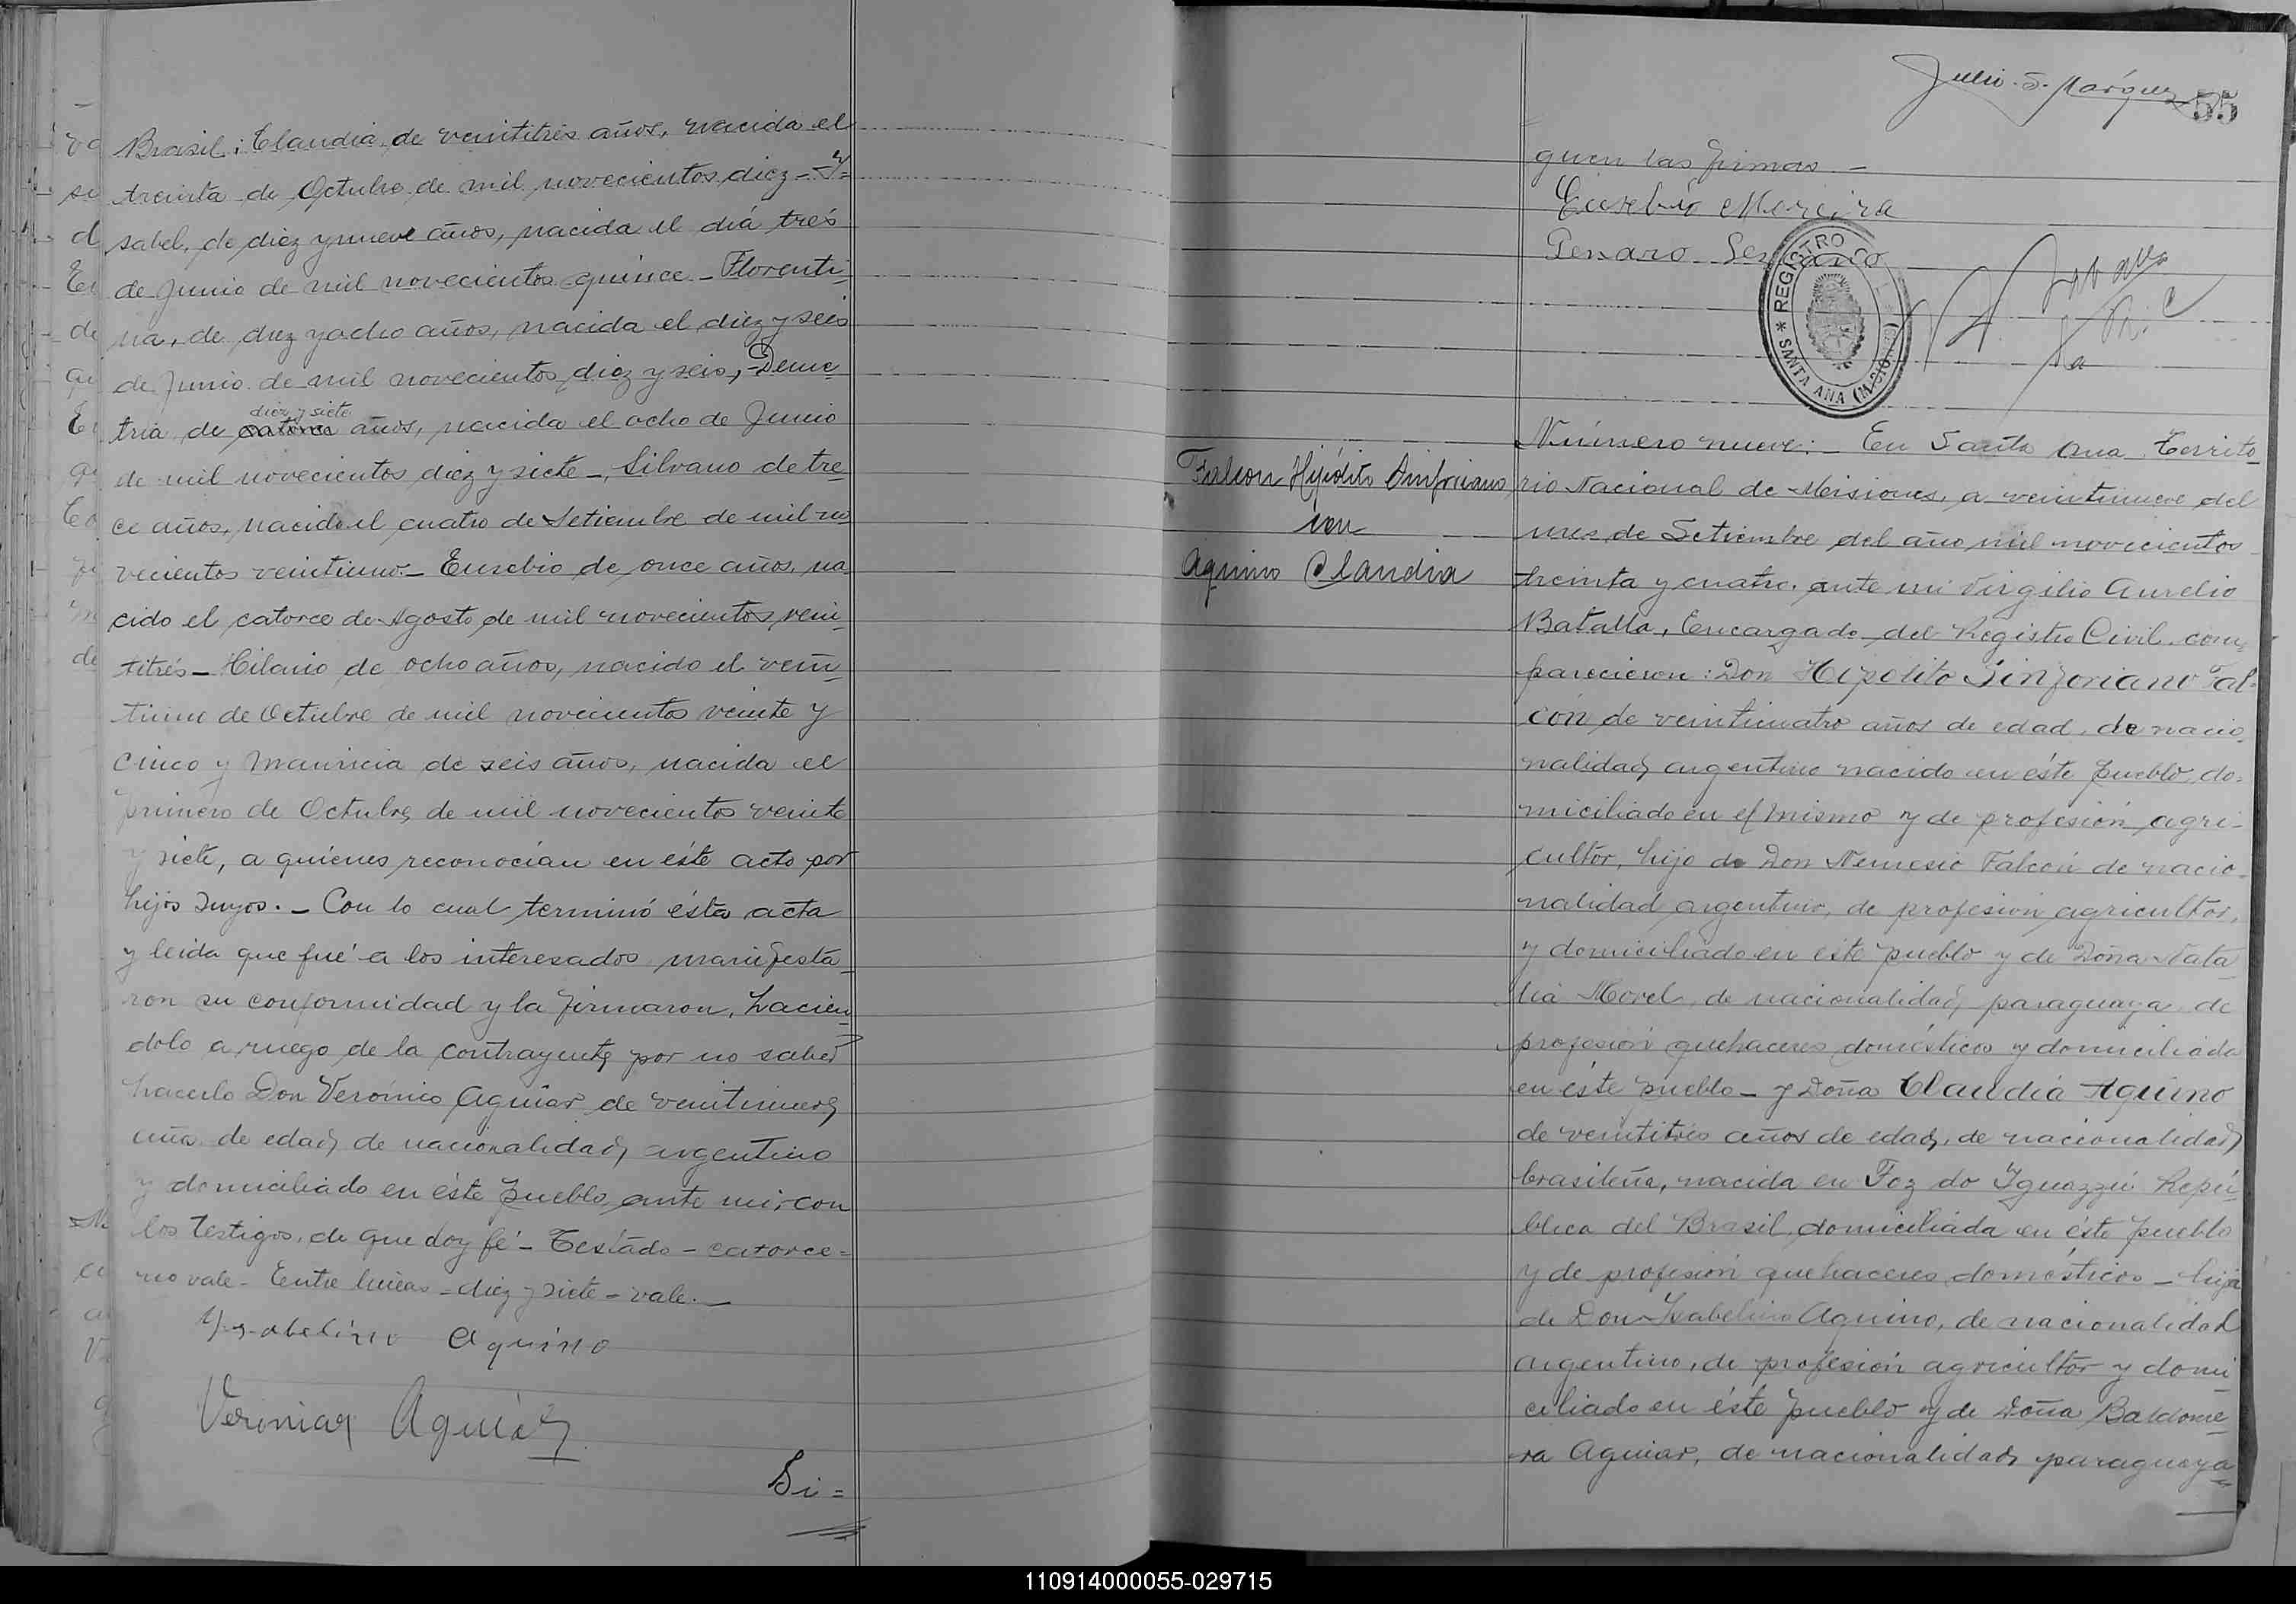 Brasil; Claudia de veintitrés años, nacida el
treinta de Octubre de mil novecientos diez - Y=
sabel, de diez y nueve años, nacida el día tres
de Junio de mil novecientos quince - Florenti-
na, de diez y ocho años, nacida el diez y seis
de Junio de mil novecientos diez y seis, - Deme-
diez y siete
tria de catorce años, nacida el ocho de Junio
de mil novecientos diez y siete -, Silvano de tre-
ce años, nacido el cuatro de Setiembre de mil no
vecientos veintiuno. - Eusebio de once años, na-
cido el catorce de Agosto de mil novecientos vein-
titrés - Hilario de ocho años, nacido el vein-
tiuno de Octubre de mil novecientos veinte y
cinco y Mauricia de seis años, nacida el
primero de Octubre de mil novecientos veinte
y siete, a quienes reconocían en éste acto por
hijos suyos. - Con lo cual terminó ésta acta
y leida que fué a los interesados manifesta-
ron su conformidad y la firmaron, hacien-
dolo a ruego de la contrayente por no saber
hacerlo Don Verónico Aguiar de veintinueve
años de edad, de nacionalidad argentino
y domiciliado en éste pueblo, ante mi, con
los testigos, de que doy fé - Testado - catorce =
no vale - Entre lineas - diez y siete - vale. -
Ysabelino Aquino
Aguiar
Si =
Julio S. Márquez
55
guen las firmas. -
Eusebio Moreira
Genaro
REGISTRO
SANTA ANA
Falcon Hipólito Sinforiano
con
Aquino Claudia
Número nueve: - En Santa Ana Territo-
rio Nacional de Misiones, a veintinueve del
mes de Setiembre del año mil novecientos
treinta y cuatro, ante mi Virgilio Aurelio
Batalla, Encargado del Registro Civil, com-
parecieron: Don Hipólito Sinforiano Fal-
cón de veinticuatro años de edad, de nacio-
nalidad argentino nacido en éste pueblo, do-
miciliado en el mismo y de profesión agri-
cultor, hijo de Don Nemesio Falcón de nacio-
nalidad argentino, de profesión agricultor,
y domiciliado en este pueblo y de Doña Nata-
lia Morel, de nacionalidad paraguaya, de
profesión quehaceres domésticos y domiciliada
en éste pueblo - y Doña Claudia Aquino
de veintitrés años de edad, de nacionalidad
brasileña, nacida en Foz do Yguazzú Repú-
blica del Brasil, domiciliada en éste pueblo
y de profesión quehaceres domésticos - hija
de Don Isabelino Aquino, de nacionalidad
argentino, de profesión agricultor y domi-
ciliado en éste pueblo y de Doña Baldome-
ra Aguiar, de nacionalidad paraguaya
110914000055-029715